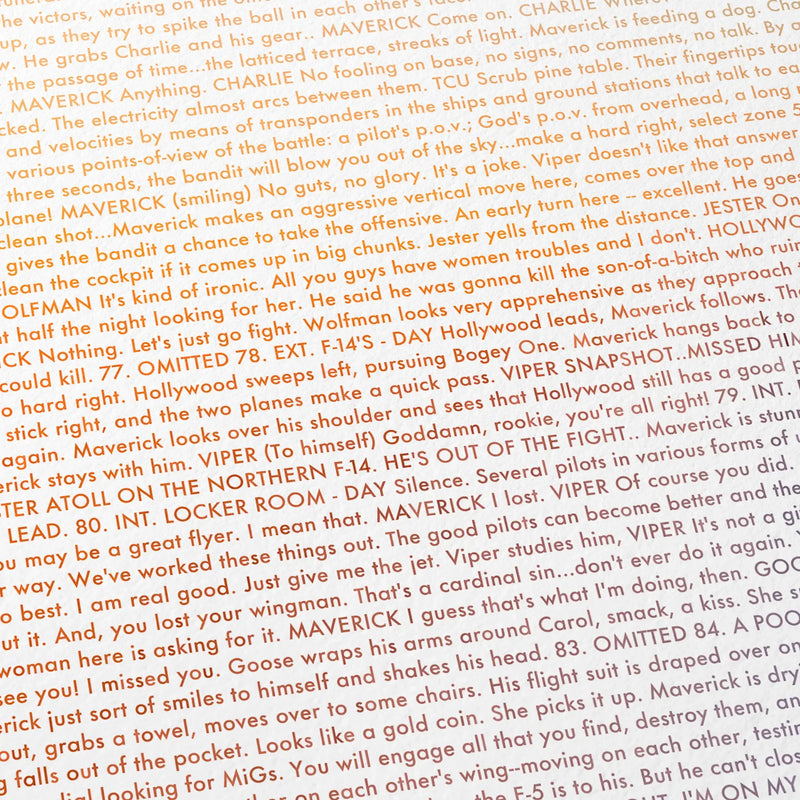 the victors, waiting on the
up, as they try to spike the ball in each other's
w. He grabs Charlie and his gear.. MAVERICK Come on. CHARLIE
r the passage of time...the latticed terrace, streaks of light. Maverick is feeding a dog.
. MAVERICK Anything. CHARLIE No fooling on base, no signs, no comments, no talk. By
cked. The electricity almost arcs between them. TCU Scrub pine table. Their fingertips
and velocities by means of transponders in the ships and ground stations that talk to
various points-of-view of the battle: a pilot's p.o.v.; God's p.o.v. from overhead, a long
three seconds, the bandit will blow you out of the sky...make a hard right, select zone 5
plane! MAVERICK (smiling) No guts, no glory. It's a joke. Viper doesn't like that answer
clean shot...Maverick makes an aggressive vertical move here, comes over the top and
gives the bandit a chance to take the offensive. An early turn here -- excellent. He goes
clean the cockpit if it comes up in big chunks. Jester yells from the distance. JESTER On
OLFMAN It's kind of ironic. All you guys have women troubles and I don't. HOLLYWO
t half the night looking for her. He said he was gonna kill the son-of-a-bitch who ruin
ICK Nothing. Let's just go fight. Wolfman looks very apprehensive as they approach
could kill. 77. OMITTED 78. EXT. F-14'S - DAY Hollywood leads, Maverick follows. The
o hard right. Hollywood sweeps left, pursuing Bogey One. Maverick hangs back to
stick right, and the two planes make a quick pass. VIPER SNAPSHOT..MISSED HIM
again. Maverick looks over his shoulder and sees that Hollywood still has a good p
erick stays with him. VIPER (To himself) Goddamn, rookie, you're all right! 79. INT.
STER ATOLL ON THE NORTHERN F-14. HE'S OUT OF THE FIGHT.. Maverick is stunn
LEAD. 80. INT. LOCKER ROOM - DAY Silence. Several pilots in various forms of
ou may be a great flyer. I mean that. MAVERICK I lost. VIPER Of course you did.
r way. We've worked these things out. The good pilots can become better and the
o best. I am real good. Just give me the jet. Viper studies him, VIPER It's not a gi
ut it. And, you lost your wingman. That's a cardinal sin...don't ever do it again.
woman here is asking for it. MAVERICK I guess that's what I'm doing, then. GOO
see you! I missed you. Goose wraps his arms around Carol, smack, a kiss. She
erick just sort of smiles to himself and shakes his head. 83. OMITTED 84. A POO
out, grabs a towel, moves over to some chairs. His flight suit is draped over on
g falls out of the pocket. Looks like a gold coin. She picks it up. Maverick is dry
dial looking for MiGs. You will engage all that you find, destroy them, an
on each other's wing--moving on each other, testin
the F-5 is to his. But he can't clos
I'M ON MY